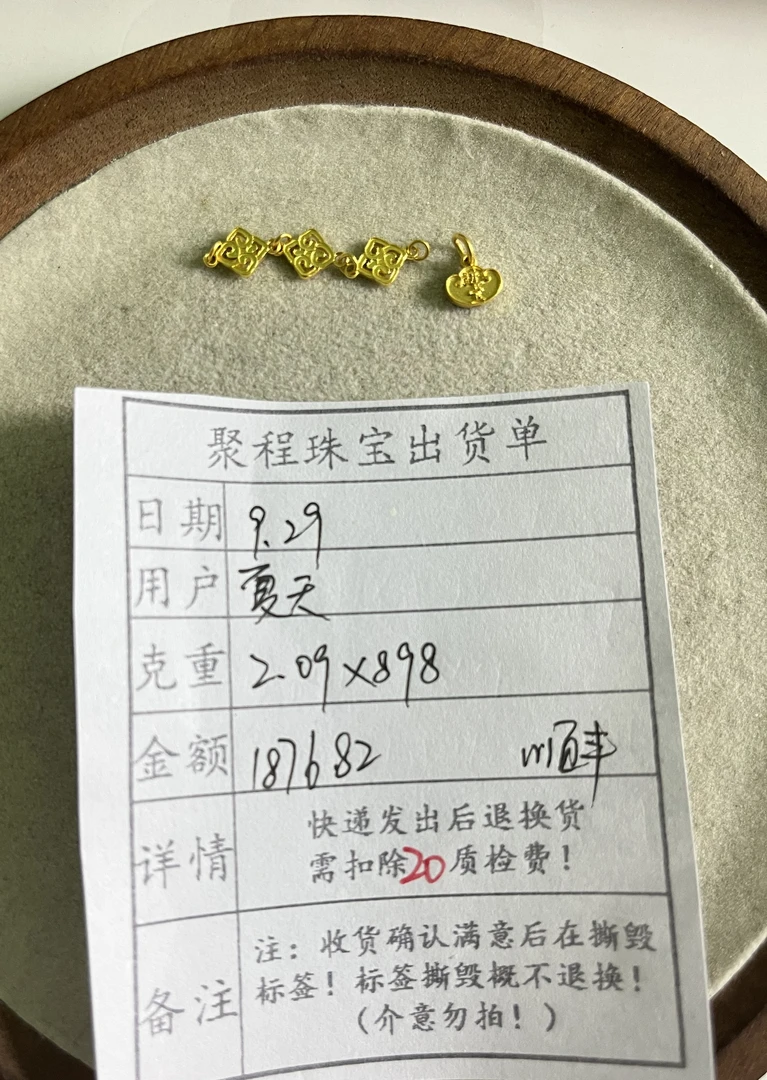 聚程珠宝出货单
日期 9.29
用户 夏天
克重 2.09×898
金额 187682 顺丰
详情 快递发出后退换货
需扣除20质检费！
备注 注：收货确认满意后在撕毁
标签！标签撕毁概不退换！
（介意勿拍！）